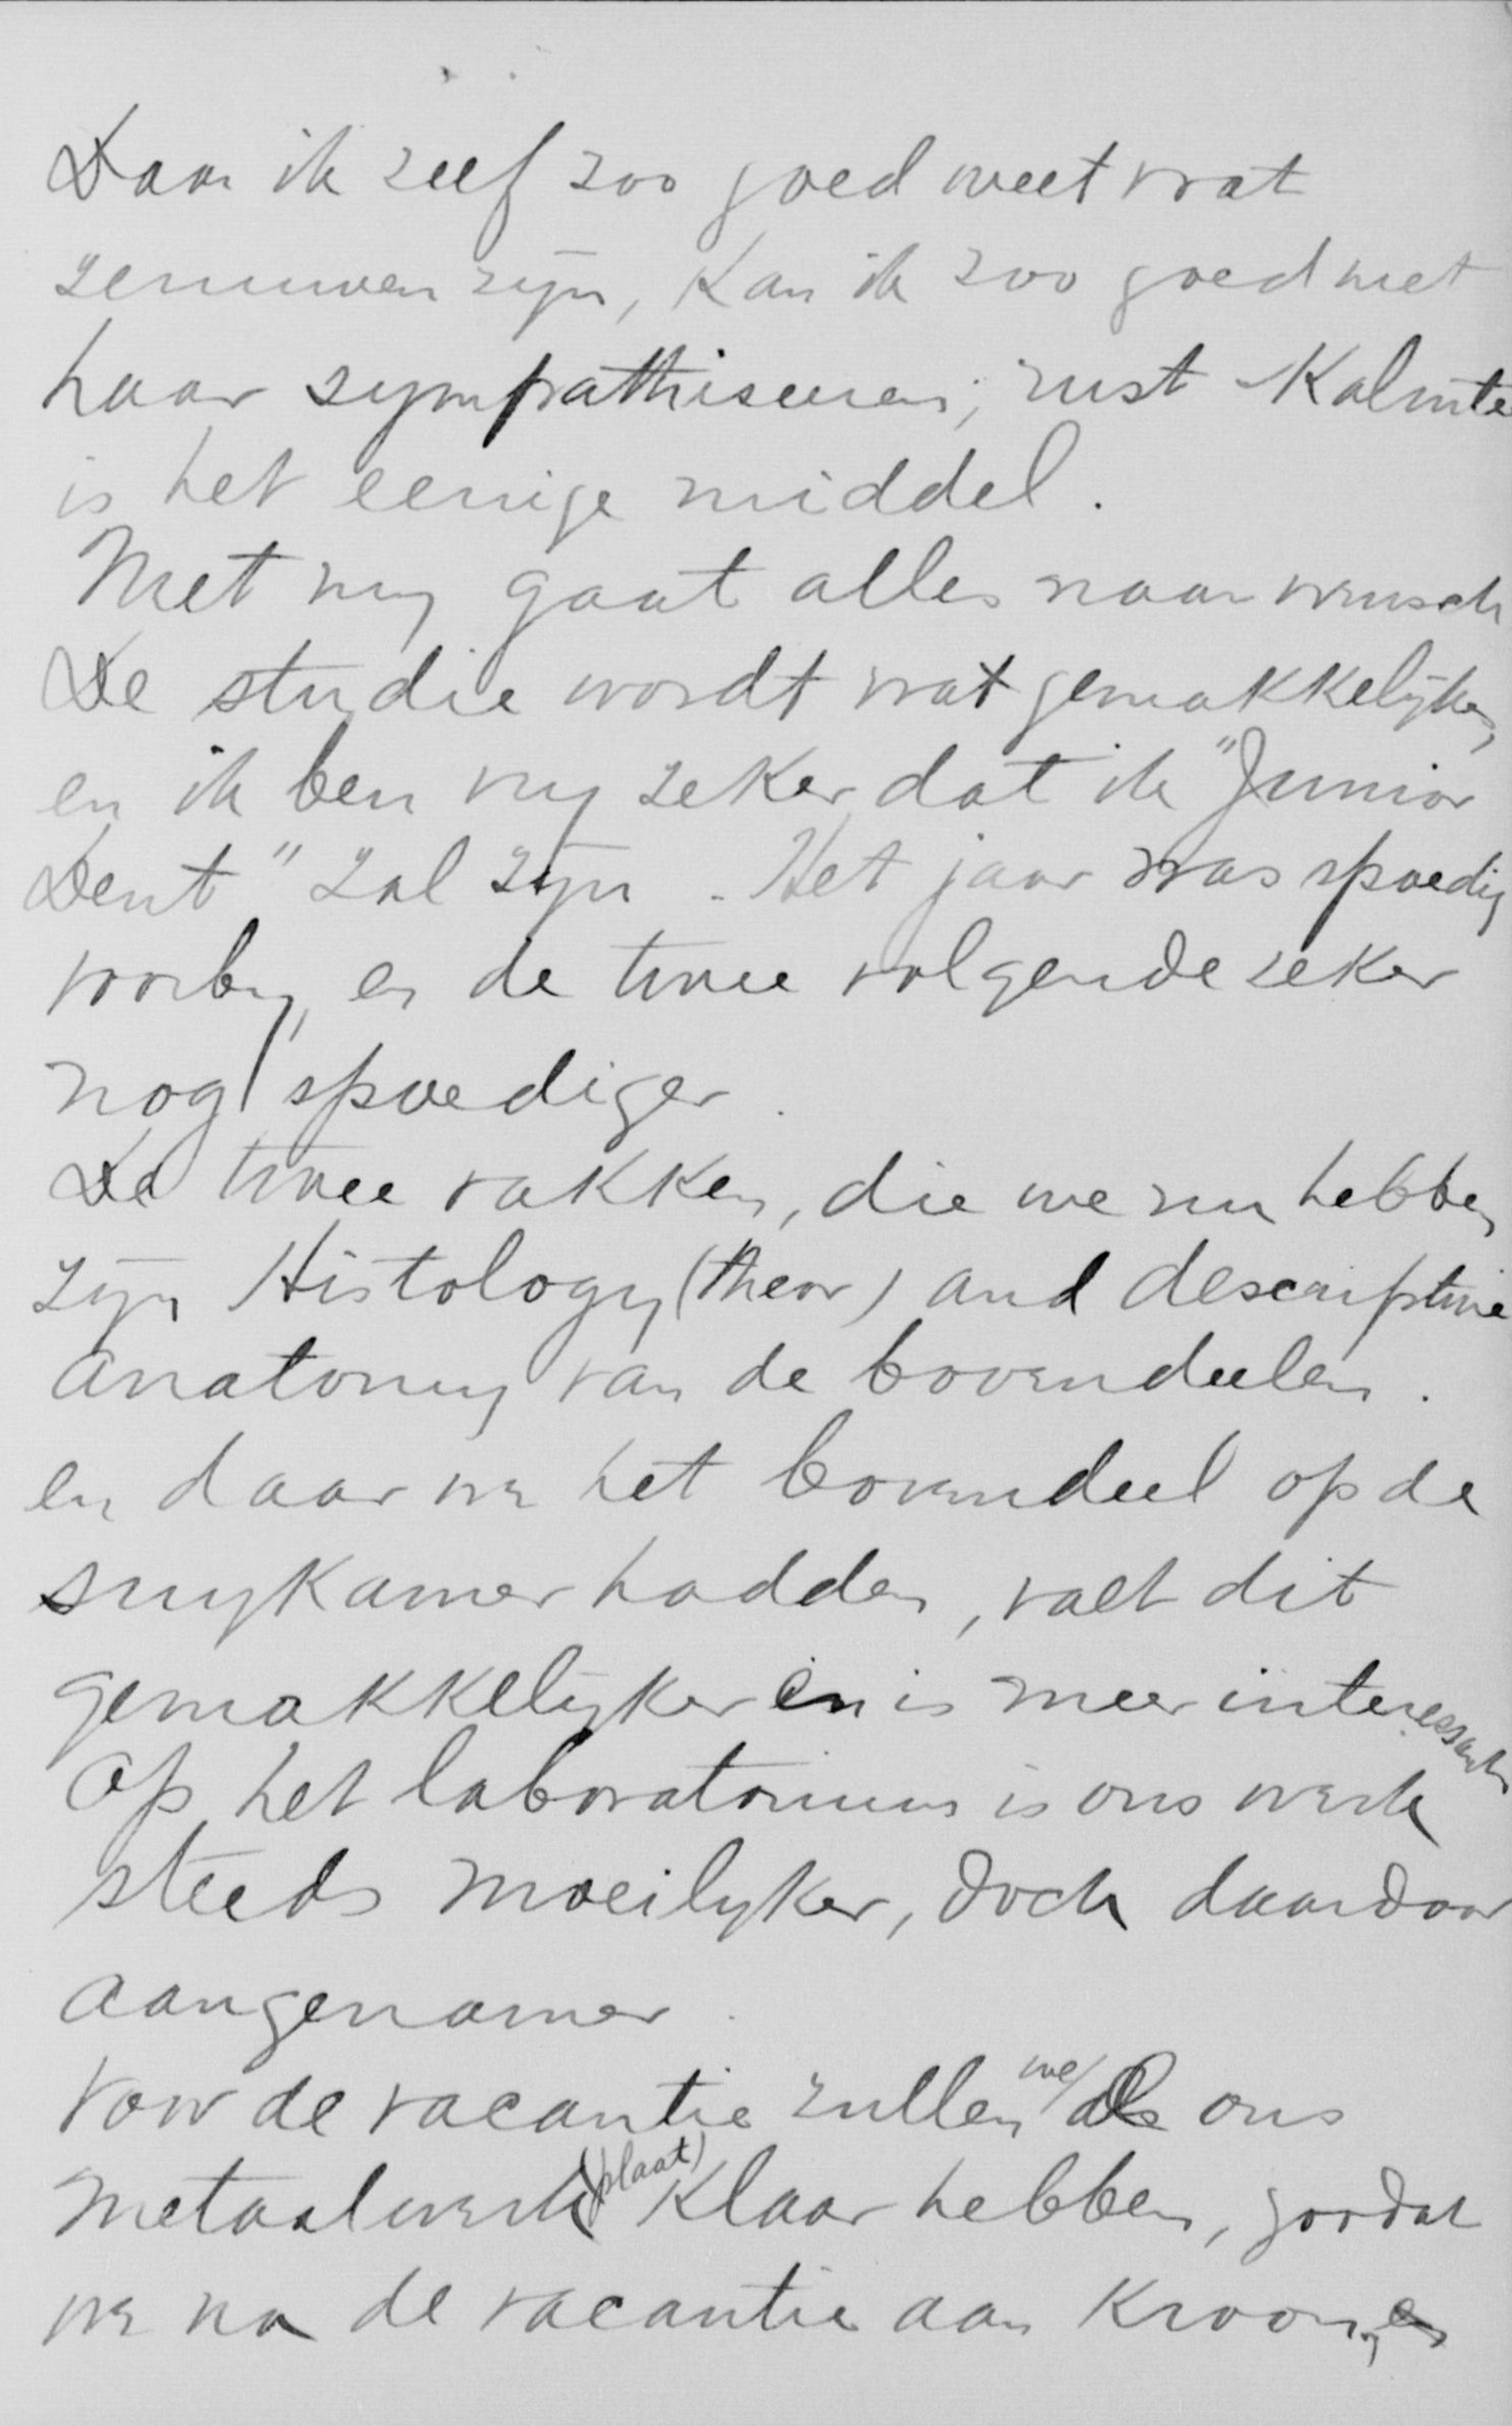 Daar ik zelf zoo goed weet wat
zenuwen zijn, kan ik zoo goed met
haar sympathiseeren, rust & kalmte
is het eenige middel.
Met my gaat alles naar wensch
De studie wordt wat gemakkelijker,
en ik ben my zeker dat ik "Junior
Dent" zal zijn. Het jaar was spoedig
voorby, en de twee volgende zeker
nog spoediger.
De twee vakken, die we nu hebben
zijn Histology (theor) and descriptive
anatomy van de bovendeelen.
en daar we het bovendeel op de
snykamer hadden, valt dit
gemakkelijker en is meer interessant
Op het laboratorium is ons werk
steeds moeilyker, doch daardoor
aangenamer.
Voor de vacantie zullen we al ons
metaalwerk (plaat) klaar hebben, zoodat
we na de vacantie aan kroon, en